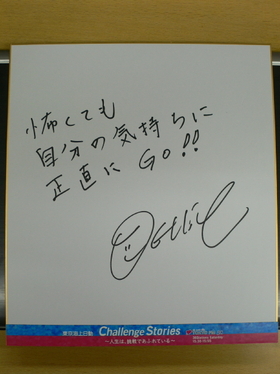 怖くても
自分の気持ちに
正直に GO!!
東京海上日動 Challenge Stories
〜人生は、挑戦であふれている〜